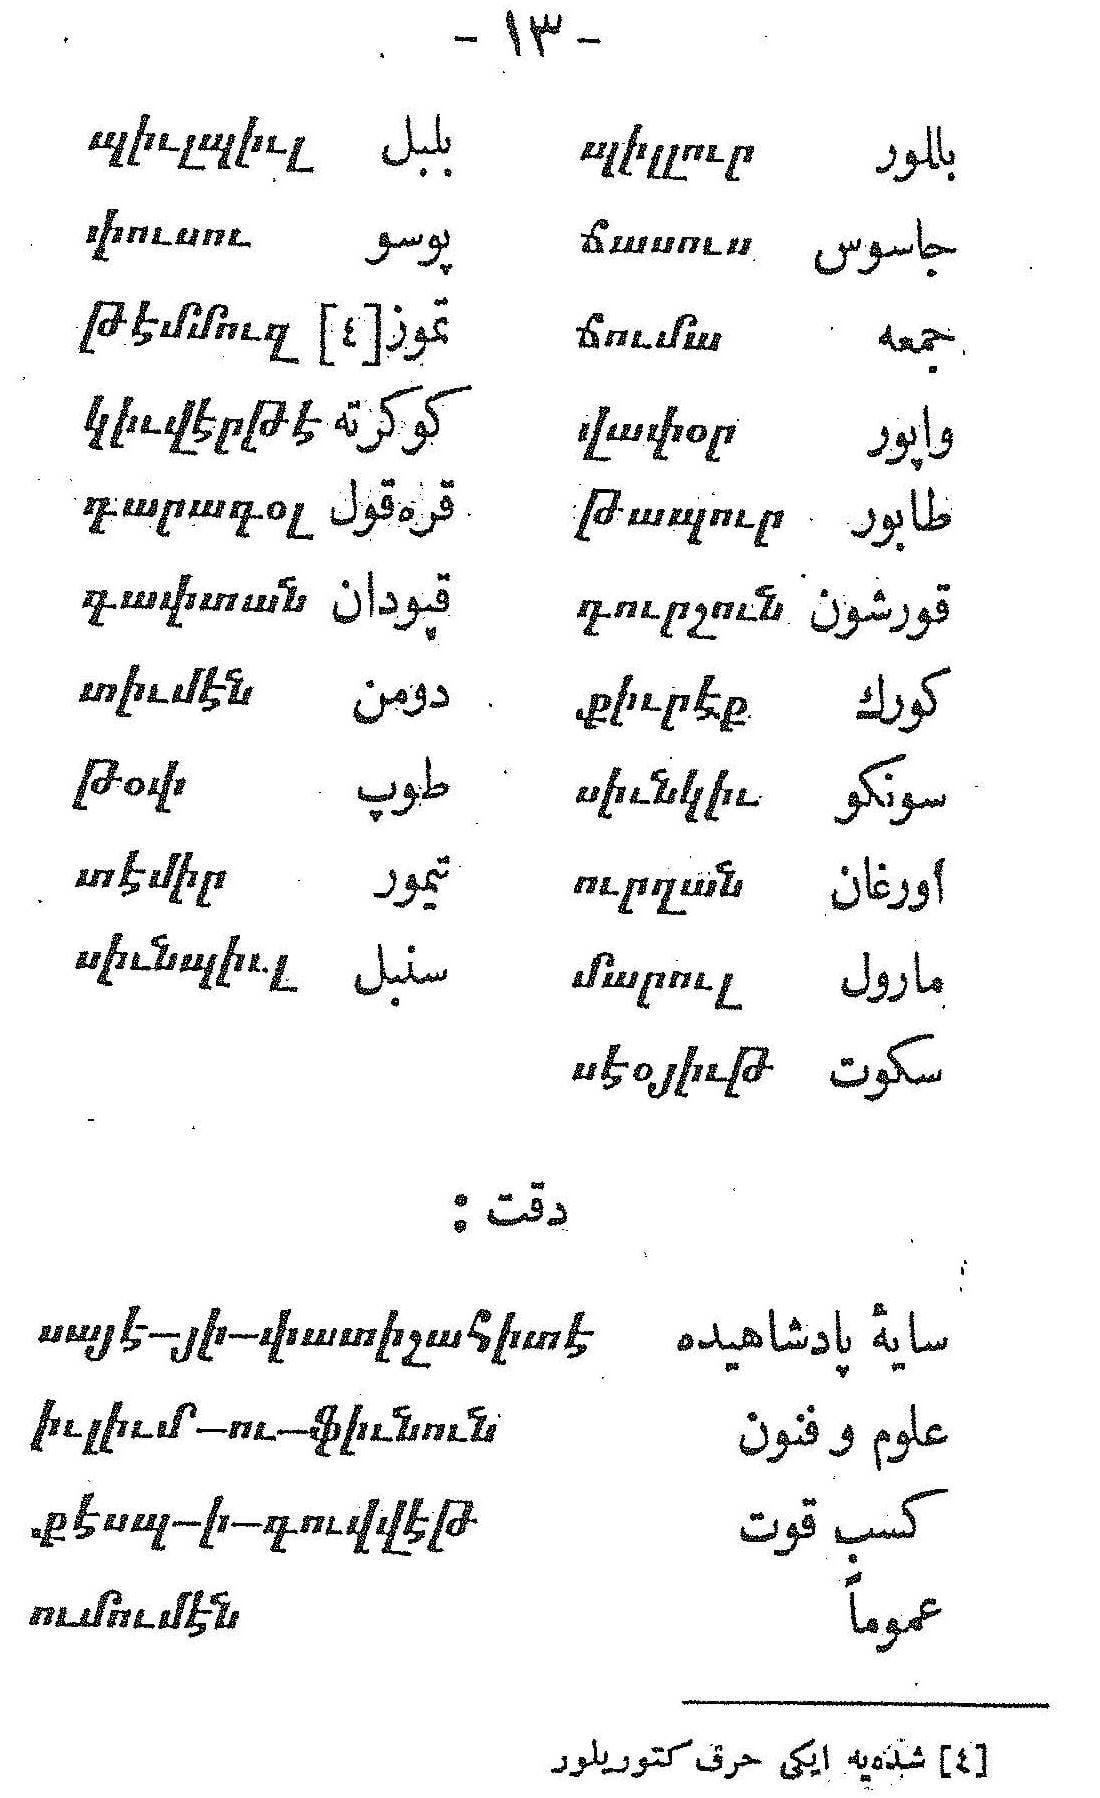 - ١٣ -
باللور պիլլուր بلبل պիւլպիւլ
جاسوس ճասուս پوسو փուսու
جمعه ճումա تموز [٤] թէմմուզ
واپور վափօր كوكرته կիւվէրթէ
طابور թապուր قره‌قول գարագօլ
قورشون գուրշուն قپودان գափտան
كورك քիւրէք دومن տիւմէն
سونكو սիւնկիւ طوپ թօփ
اورغان ուրղան تيمور տէմիր
مارول մարուլ سنبل սիւնպիւլ
سكوت սէօյիւթ
دقت :
سايهٔ پادشاهيده սայէ–յի–փատիշահիտէ
علوم و فنون իւլիւմ–ու–ֆիւնուն
كسب قوت քէսպ–ի–գուվվէթ
عموماً ումումէն
[٤] شده‌يه ايكى حرف كتوريلور